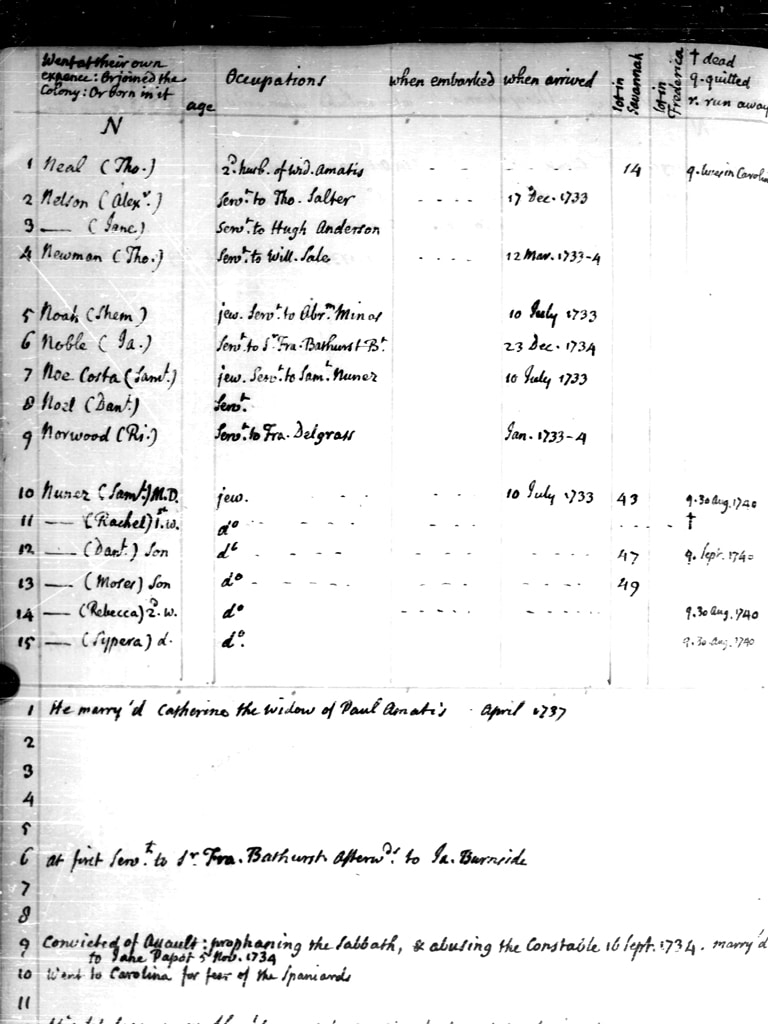 Went at their own
expence: Or joined the
Colony: Or born in it
age
Occupations
when embarked
when arrived
lot in Savannah
lot in Frederica
† dead
q. quitted
r. run away
N
1 Neal (Tho.) 2d. husb. of wid. Amatis - - - - - - - - - 14 q. lives in Carolin
2 Nelson (Alexr.) Servt. to Tho. Salter - - - - 17 Dec. 1733
3 —— (Jane) Servt. to Hugh Anderson
4 Newman (Tho.) Servt. to Will. Sale - - - - 12 Mar. 1733-4
5 Noah (Shem) jew. Servt. to Abrm. Minas 10 July 1733
6 Noble (Ja.) Servt. to Sr. Fra. Bathurst Bt. 23 Dec. 1734
7 Noe Costa (Saml.) jew. Servt. to Saml. Nunez 10 July 1733
8 Noel (Danl.) Servt.
9 Norwood (Ri.) Servt. to Fra. Delgrass Jan. 1733-4
10 Nunez (Saml.) M.D. jew. - - - - - - 10 July 1733 43 q. 30 Aug. 1740
11 —— (Rachel) 1st. w. do - - - - - - - - - - - - †
12 —— (Danl.) Son do - - - - - - - - - - - - 47 q. Sepr. 1740
13 —— (Moses) Son do - - - - - - - - - - - - 49
14 —— (Rebecca) 2d. w. do - - - - - - - - - q. 30 Aug. 1740
15 —— (Sypera) d. do. q. 30 Aug. 1740
1 He marry'd Catherine the widow of Paul Amatis April 1737
2
3
4
5
6 at first Servt. to Sr. Fra. Bathurst Afterwds. to Ja. Burnside
7
8
9 Convicted of Assault: prophaning the Sabbath, & abusing the Constable 16 Sept. 1734. marry'd
to Jane Papot 5 Nov. 1734
10 Went to Carolina for fear of the Spaniards
11